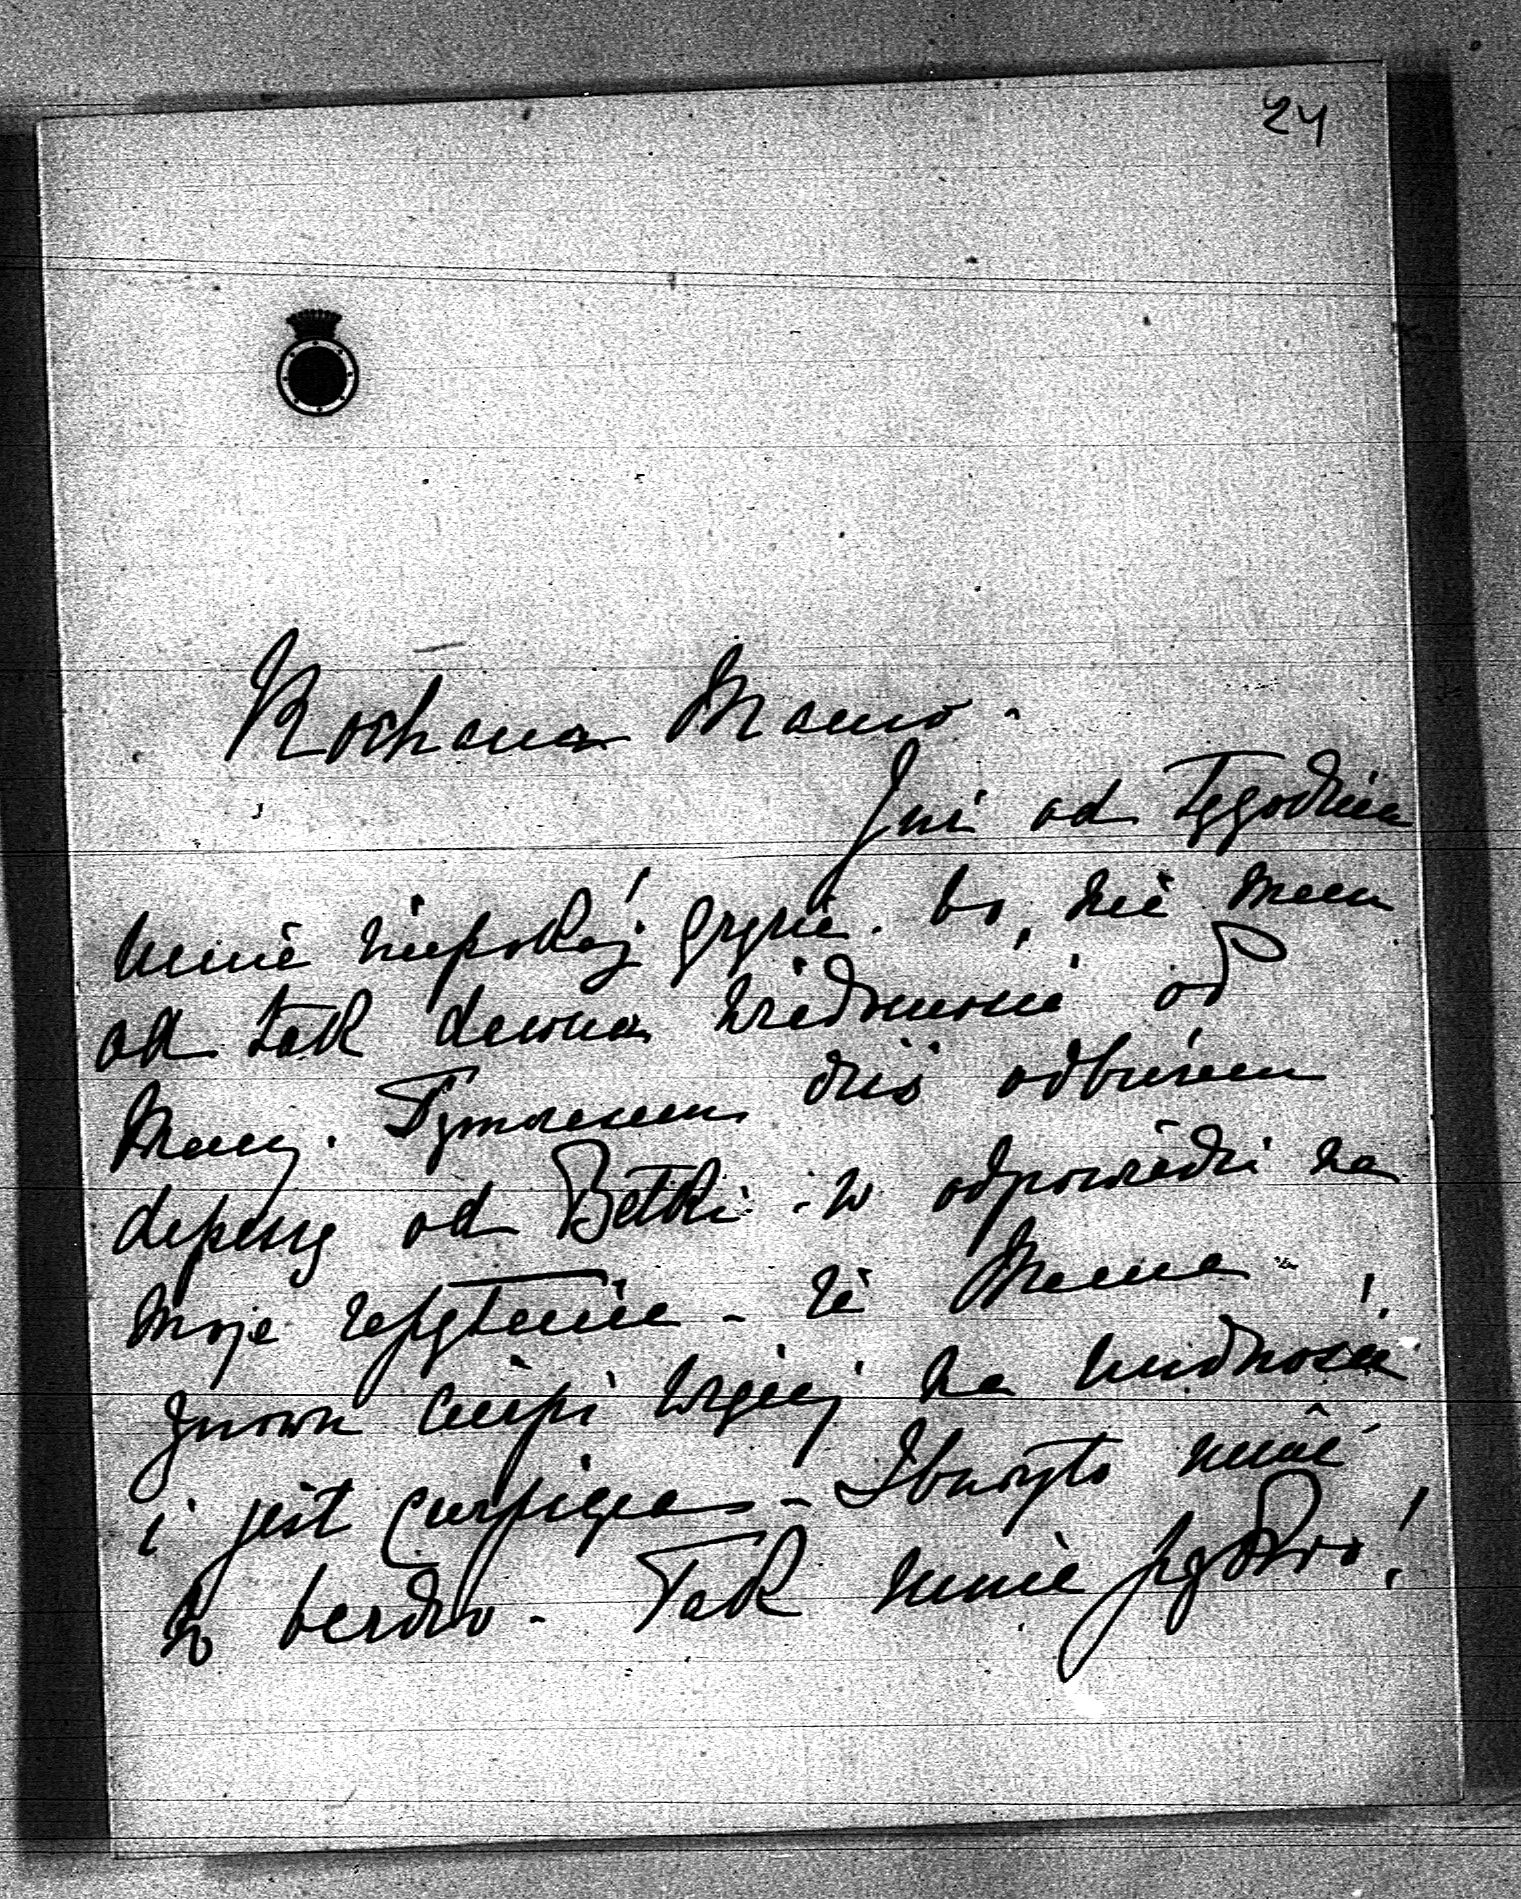 24
Kochana Mamo.
Już od tygodnia
mnie niepokój gryzie. bo, nie mam
od tak dawna wiadomości od
Mamy. Tymczasem dziś odbieram
depeszę od Betki - w odpowiedzi na
moje zapytanie - że Mama
znown cierpi więcej na nudności
i jest cierpiąca - Zbucyto mnie
to bardzo - Tak mnie przykro!